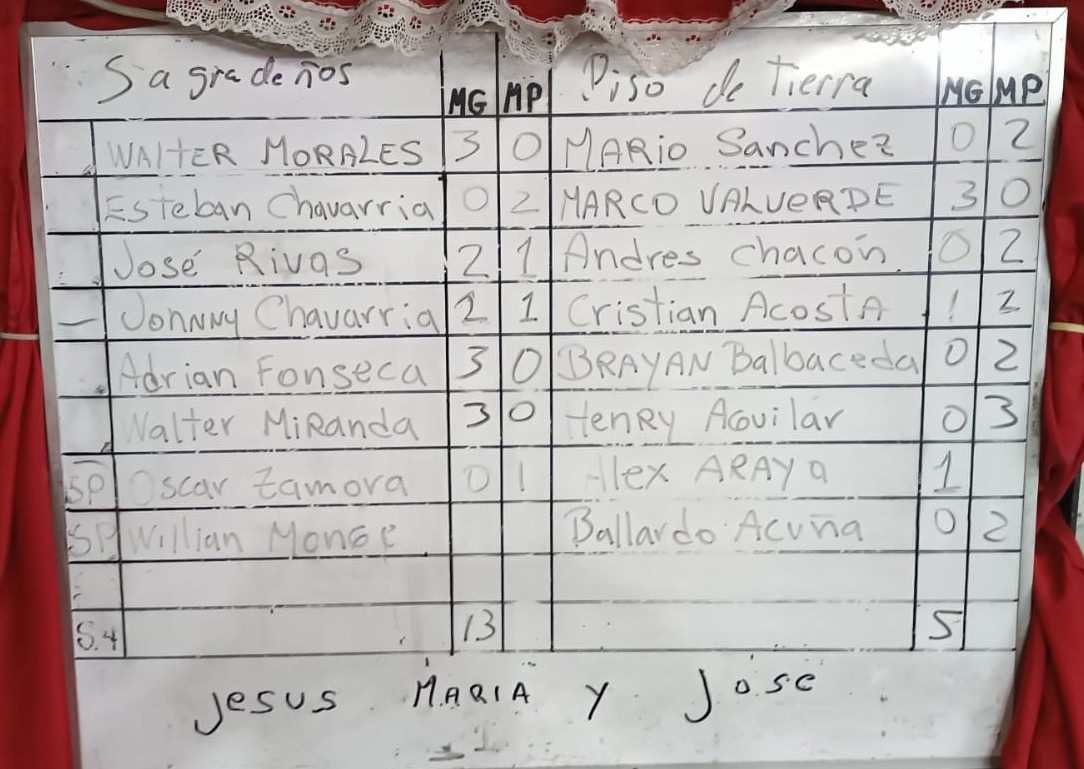 Sagradeños MG MP Piso de Tierra MG MP
WALTER MORALES 3 0 MARio Sanchez 0 2
Esteban Chavarria 0 2 MARCO VALVERDE 3 0
José Rivas 2 1 Andres chacón 0 2
JoHNNy Chavarria 2 1 Cristian AcostA 1 2
Adrian Fonseca 3 0 BRAYAN Balbaceda 0 2
Walter MiRanda 3 0 HenRy AGuilar 0 3
SP Oscar Zamora 0 1 Alex ARAYa 1
SP Willian MonGe Ballardo Acuña 0 2
S.4 13 5
JESUS MARIA Y Jose